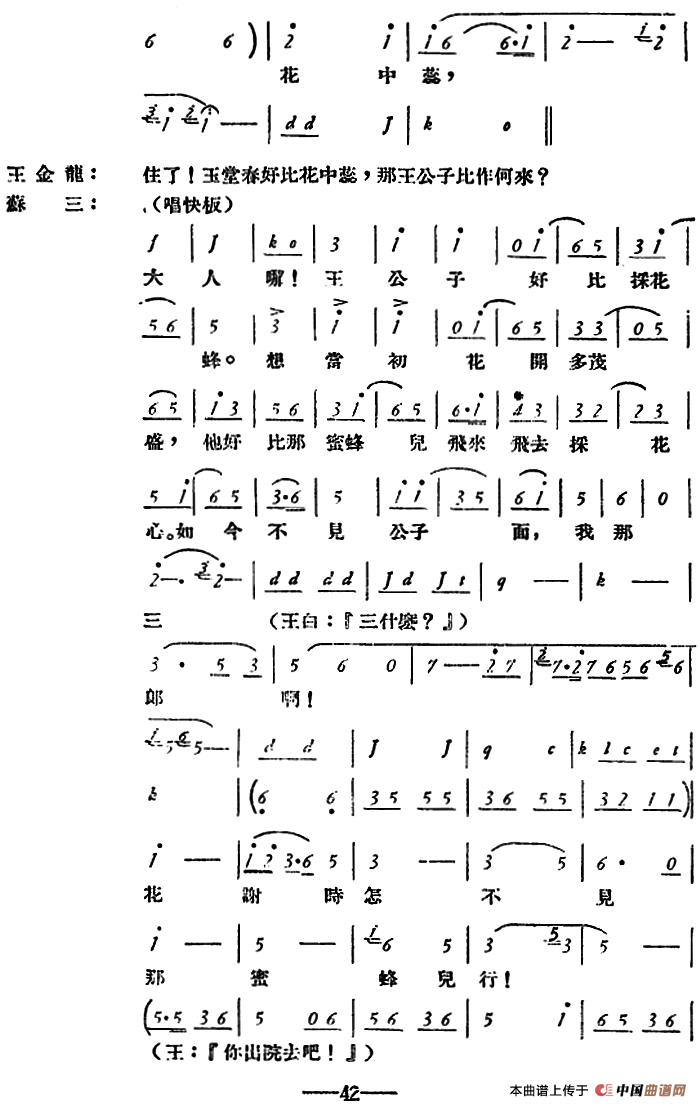 6 6 ) | 2 i | i 6 6·i | 2 — i2 |
花 中 蕊，
3i 2i — | d d J | k o ‖
王金龍： 住了！玉堂春好比花中蕊，那王公子比作何來？
蘇 三： （唱快板）
J | J | k o | 3 | i | i | 0 i | 6 5 | 3 i |
大 人 哪！ 王 公 子 好 比 採花
5 6 | 5 | 3 | i | i | 0 i | 6 5 | 3 3 | 0 5 |
蜂。 想 當 初 花 開 多茂
6 5 | i 3 | 5 6 | 3 i | 6 5 | 6·i | 4 3 | 3 2 | 2 3 |
盛，他好 比那 蜜蜂 兒 飛來 飛去 採 花
5 i | 6 5 | 3·6 | 5 | i i | 3 5 | 6 i | 5 | 6 | 0 |
心。如 今 不 見 公子 面， 我 那
2 —· 32 — | d d d d | J d J t | q — | k — |
三 （王白：『三什麽？』）
3 · 5 3 | 5 6 0 | 7 — 2 7 | 27·2 7 6 5 6 56 |
郎 啊！
i5 65 — | d d | J J | q c | k l c e t |
k | ( 6 6 | 3 5 5 5 | 3 6 5 5 | 3 2 1 1 ) |
i — | i 2 3·6 5 | 3 — | 3 5 | 6· 0 |
花 謝 時 怎 不 見
i — | 5 — | i6 5 | 3 53 | 5 — |
那 蜜 蜂 兒 行！
( 5·5 3 6 | 5 0 6 | 5 6 3 6 | 5 i | 6 5 3 6 |
（王：『你出院去吧！』）
—42—
本曲谱上传于 中国曲谱网